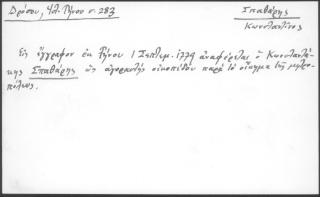 Δρόσου, Ἱστ. Τήνου σ. 283
Σπαθάρης
Κωνσταντῖνος
Εἰς ἔγγραφον ἐκ Τήνου 1 Σεπτεμ. 1774 ἀναφέρεται ὁ Κωνσταντά-
κης Σπαθάρης ὡς ἀγοραστὴς οἰκοπέδου παρὰ τὸ οἴκημα τῆς μητρο-
πόλεως.